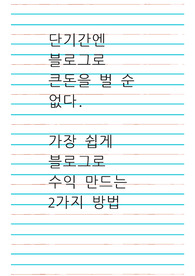 단기간엔
블로그로
큰돈을 벌 순
없다.
가장 쉽게
블로그로
수익 만드는
2가지 방법